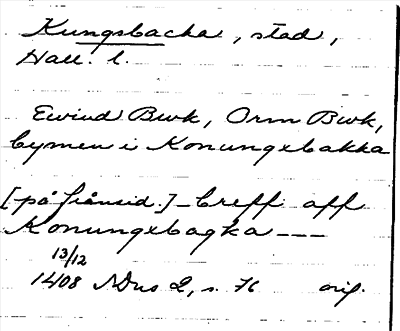 Kungsbacka, stad,
Hall. l.
Eivind Bwk, Orm Bwk,
bymen i Konungebakka
[på frånsid.] – breff aff
Konungebagka ---
13/12
1408 NDns 2, s. 76 orig.